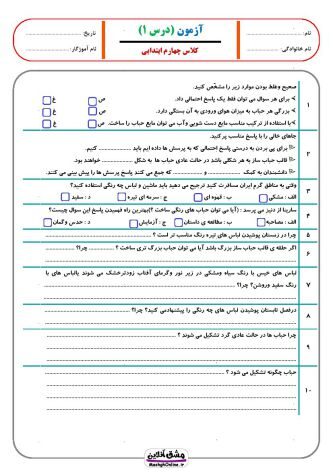 نام: ..........
نام خانوادگی: ..........
آزمون (درس ۱)
کلاس چهارم ابتدایی
تاریخ: ..........
نام آموزگار: ..........
۱
صحیح و غلط بودن موارد زیر را مشخص کنید.
برای هر سوال می توان فقط یک پاسخ احتمالی داد. ص غ
بزرگی هر حباب به میزان هوای ورودی به آن بستگی دارد. ص غ
با استفاده از ترکیب مناسب مایع دست شویی و آب می توان مایع حباب را ساخت. ص غ
۲
جاهای خالی را با پاسخ مناسب پر کنید.
برای پی بردن به درستی پاسخ احتمالی که به پرسش ها داده ایم باید .......... کنیم.
قالب حباب ساز به هر شکلی باشد در حالت عادی حباب ها به شکل .......... خواهند بود.
دانشمندان به کمک .......... و .......... که جمع می کنند پاسخ پرسش ها را پیش بینی می کنند.
۳
وقتی به مناطق گرم ایران مسافرت کنید ترجیح می دهید باید ماشین و لباس چه رنگی استفاده کنید؟
الف : مشکی ب : قهوه ای ج : سرمه ای تیره د : سفید
۴
سارینا از دنیز می پرسد : (آیا می توان حباب های رنگی ساخت ؟) بهترین راه فهمیدن پاسخ این سوال چیست؟
الف : مصاحبه ب : مطالعه ی داستان ج : آزمایش د : حدس وگمان
۵
چرا در زمستان پوشیدن لباس های تیره رنگ مناسب تر است ؟ ..........
۶
اگر حلقه ی قالب حباب ساز بزرگ باشد آیا می توان حباب بزرگ تری ساخت ؟ .......... چرا؟؟ ..........
۷
لباس های خیس با رنگ سیاه ومشکی در زیر نور وگرمای آفتاب زودترخشک می شوند یالباس های با رنگ سفید وروشن؟ چرا؟
۸
درفصل تابستان پوشیدن لباس های چه رنگی را پیشنهادمی کنید؟ چرا؟ ..........
۹
چرا حباب ها در حالت عادی گرد تشکیل می شوند ؟
۱۰
حباب چگونه تشکیل می شود ؟
مشق آنلاین
MashghOnline.ir